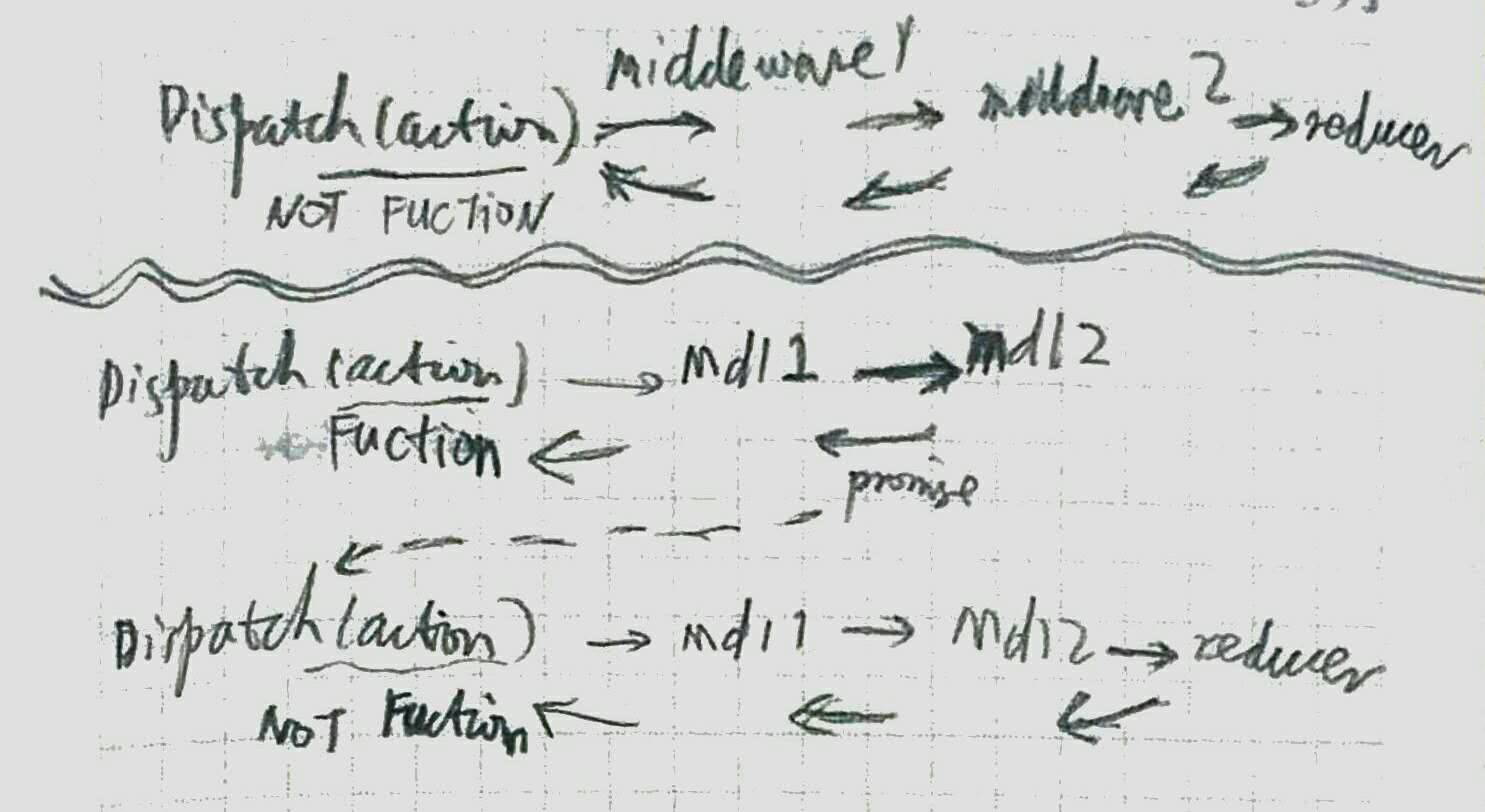 middleware1
Dispatch (action) → → middleware 2 → reducer
← ← ←
NOT FUCTION
Dispatch (action) → mdl1 → mdl2
Fuction ← ←
promise
Dispatch (action) → mdl1 → mdl2 → reducer
NOT Fuction ← ← ←